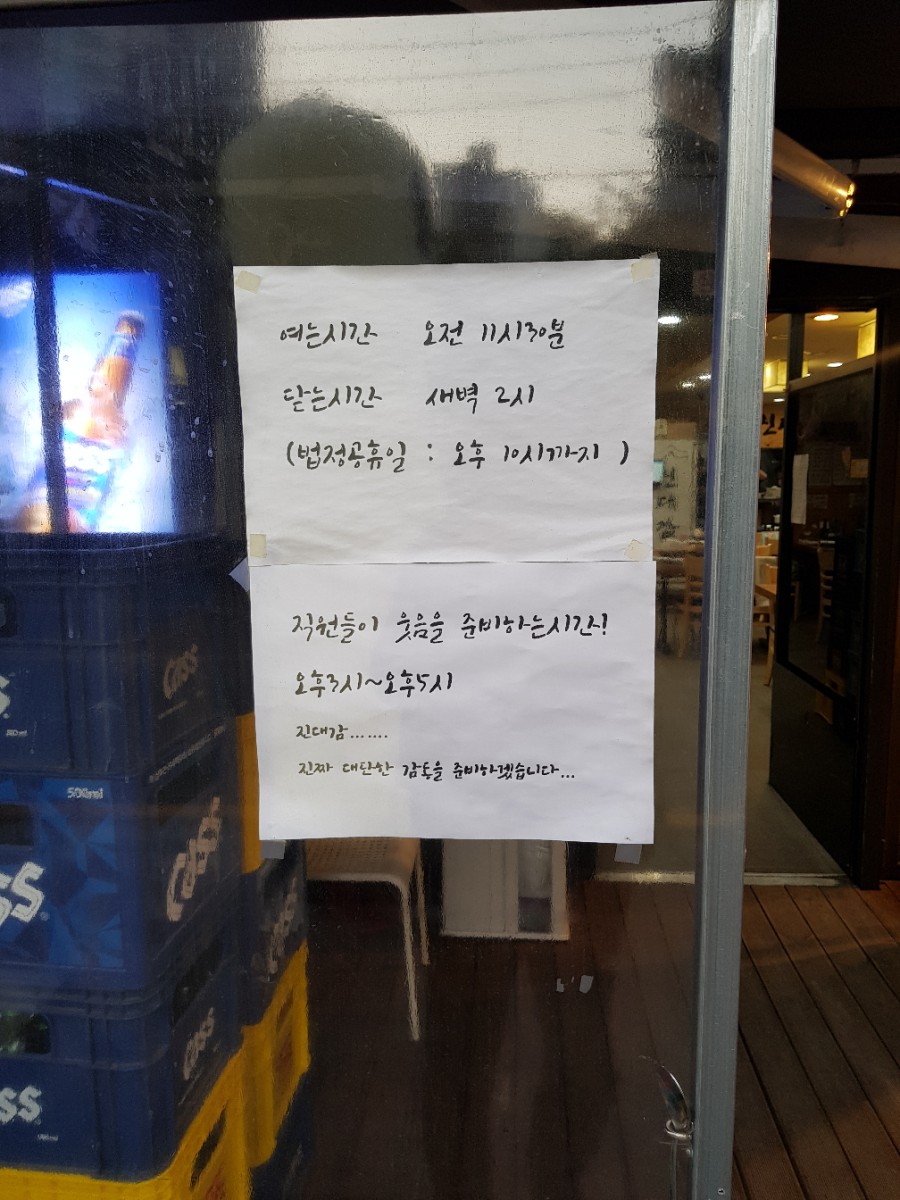 여는시간 오전 11시30분
닫는시간 새벽 2시
(법정공휴일 : 오후 10시까지 )
직원들이 웃음을 준비하는시간!
오후3시~오후5시
진대감.......
진짜 대단한 감동을 준비하겠습니다...
Cass
500ml
Cass
Cass